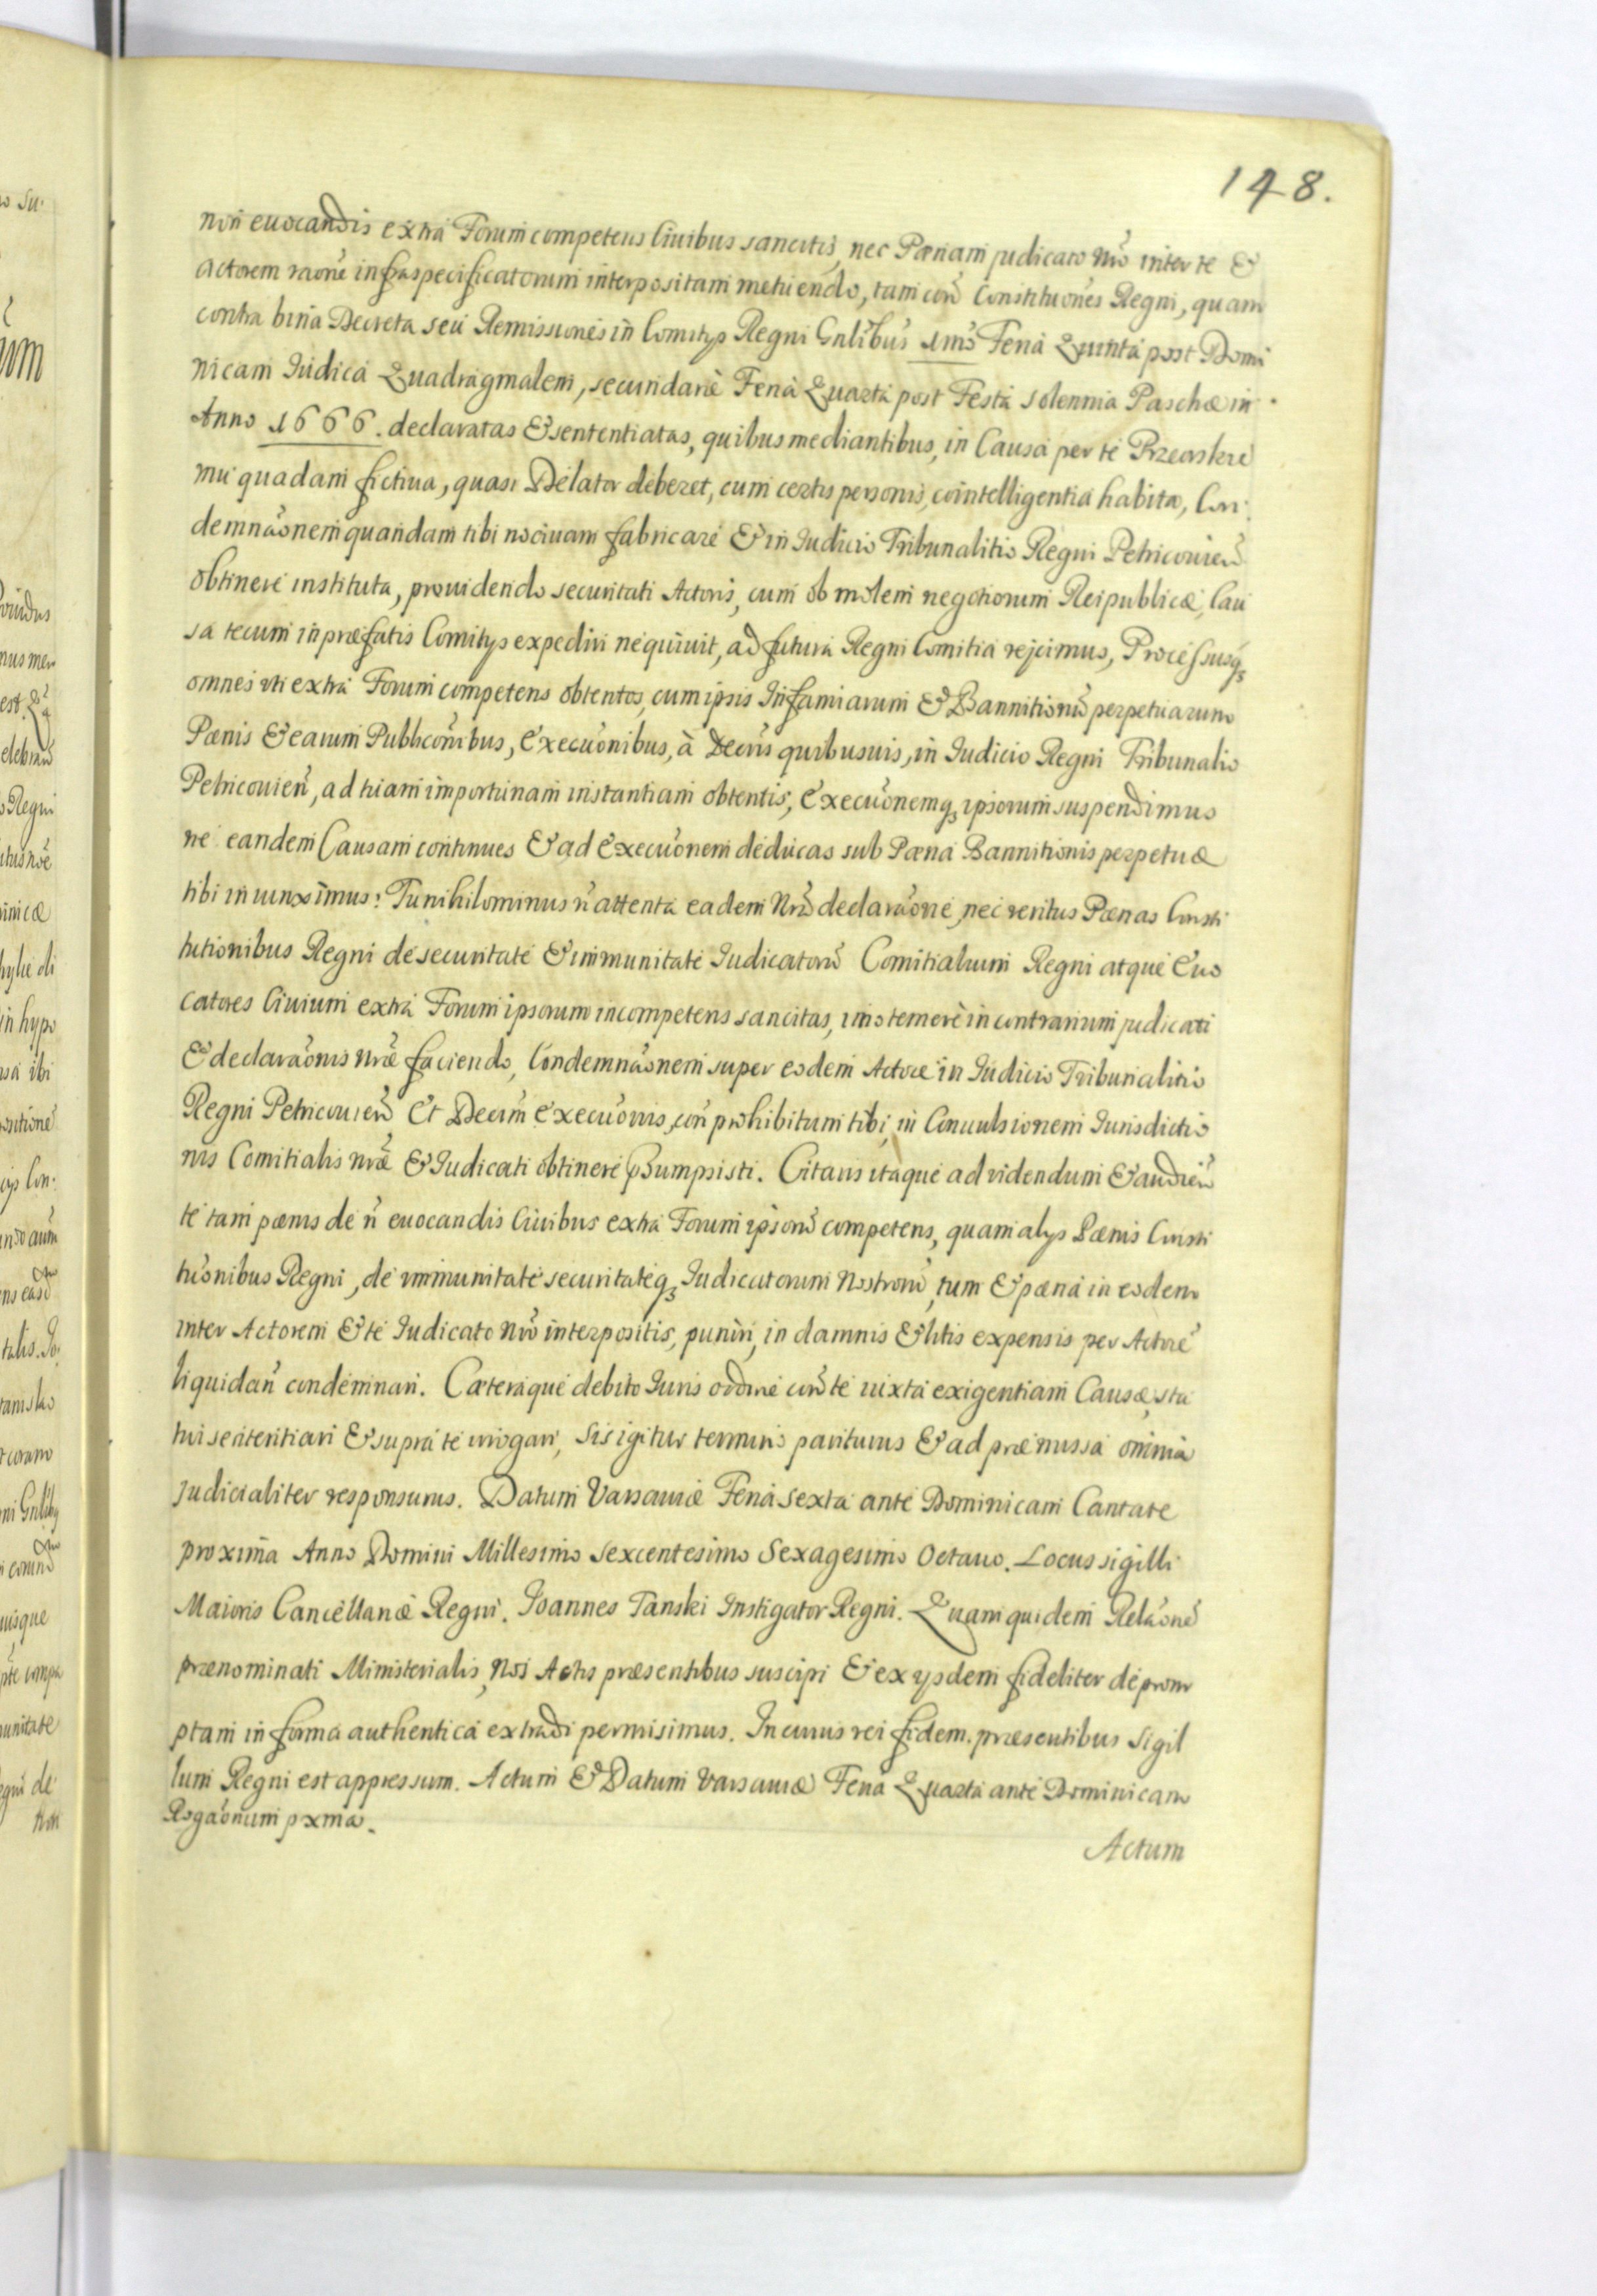 148.
non euocandis extra Forum competens Ciuibus sancitis, nec Pœnam judicato nrõ inter te &
Actorem raõne infraspecificatorum interpositam metuendo, tam con͂ Constituões Regni, quam
contra bina Decreta seu Remissiones in Comitys Regni Gnlibus 1mo Feria Quinta post Domi
nicam Iudica Quadragmalem, secundariè Feria Quarta post Festa solennia Paschæ in
Anno 1666. declaratas & sententiatas, quibus mediantibus, in Causa per te
mu quadam fictiua, quasi Delator deberet, cum certis personis, cointelligentia habita, Con:
demnaõnem quandam tibi nociuam fabricare & in Iudicio Tribunalitio Regni Petricouien͂
obtinere instituta, prouidendo securitati Actoris, cum ob molem negotiorum Reipublicæ, Cau
sa tecum in præfatis Comitys expediri nequiuit, ad futura Regni Comitia rejcimus, Processusq
omnes uti extra Forum competens obtentos, cum ipsis Infamiarum & Bannitionũ perpetuarum
Pœnis & earum Publicõnibus, Execuõnibus, à Decris quibusuis, in Iudicio Regni Tribunalio
Petricouien͂, ad tuam importunam instantiam obtentis, Execuõnemq ipsorum suspendimus
ne eandem Causam continues & ad Execuõnem deducas sub Pœna Bannitionis perpetuæ
tibi iniunximus: Tu nihilominus ñ attenta eadem Nrã declaraõne, nec veritus Pœnas Consti
tutionibus Regni de securitate & immunitate Iudicatorũ Comitialium Regni atque Euo
catores Ciuium extra Forum ipsorum incompetens sancitas, imo temerè in contrarium judicati
& declaraõnis nræ faciendo, Condemnaõnem super eodem Actore in Iudicio Tribunalitio
Regni Petricouien͂ Et Decrm̃ Execuõnis, con͂ prohibitum tibi, in Conuulsionem Iurisdictio
nis Comitialis nræ & Iudicati obtinere p̃sumpsisti. Citaris itaque ad videndum & audien͂
te tam pœnis de ñ euocandis Ciuibus extra Forum ipsorũ competens, quam alys Pœnis Consti
tuõnibus Regni, de immunitate securitateq Iudicatorum Nostrorũ, tum & pœna in eodem
inter Actorem & te Iudicato nrõ interpositis, puniri, in damnis & litis expensis per Actorẽ
liquidan͂ condemnari. Cæteraque debito Iuris ordine con͂ te iuxta exigentiam Causæ, sta
tui sententiari & supra te irrogari, sis igitur terminis pariturus & ad præmissa omnia
judicialiter responsurus. Datum Varsauiæ Feria sexta ante Dominicam Cantate
proxima Anno Domini Millesimo sexcentesimo Sexagesimo Octauo. Locus sigilli
Maioris Cancellariæ Regni. Ioannes Tanski Instigator Regni. Quam quidem Relaõnẽ
prænominati Ministerialis, Nos Actis præsentibus suscipi & ex ysdem fideliter deprom
ptam in forma authentica extradi permisimus. In cuius rei fidem præsentibus Sigil
lum Regni est appressum. Actum & Datum Varsauiæ Feria Quarta ante Dominicam
Rogaõnum pxma.
Actum